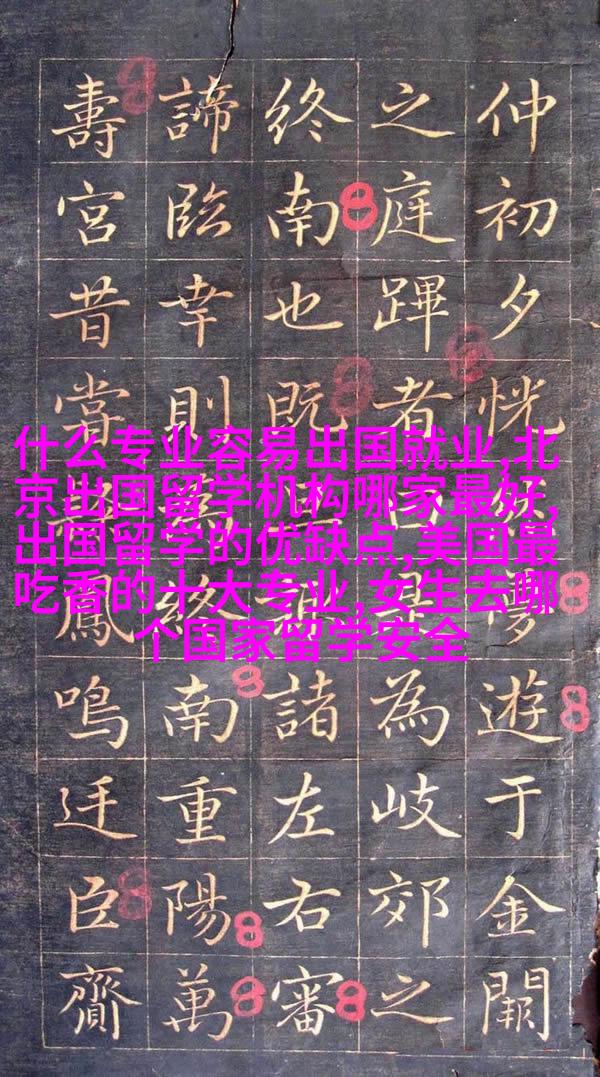 仲初夕恍遊于金闕
之庭蹕者為岐郊之
終南也既諸左右審
諦臨幸則終南重陽萬
壽宮昔當鳳鳴廷臣齎
什么专业容易出国就业,北
京出国留学机构哪家最好,
出国留学的优缺点,美国最
吃香的十大专业,女生去哪
个国家留学安全